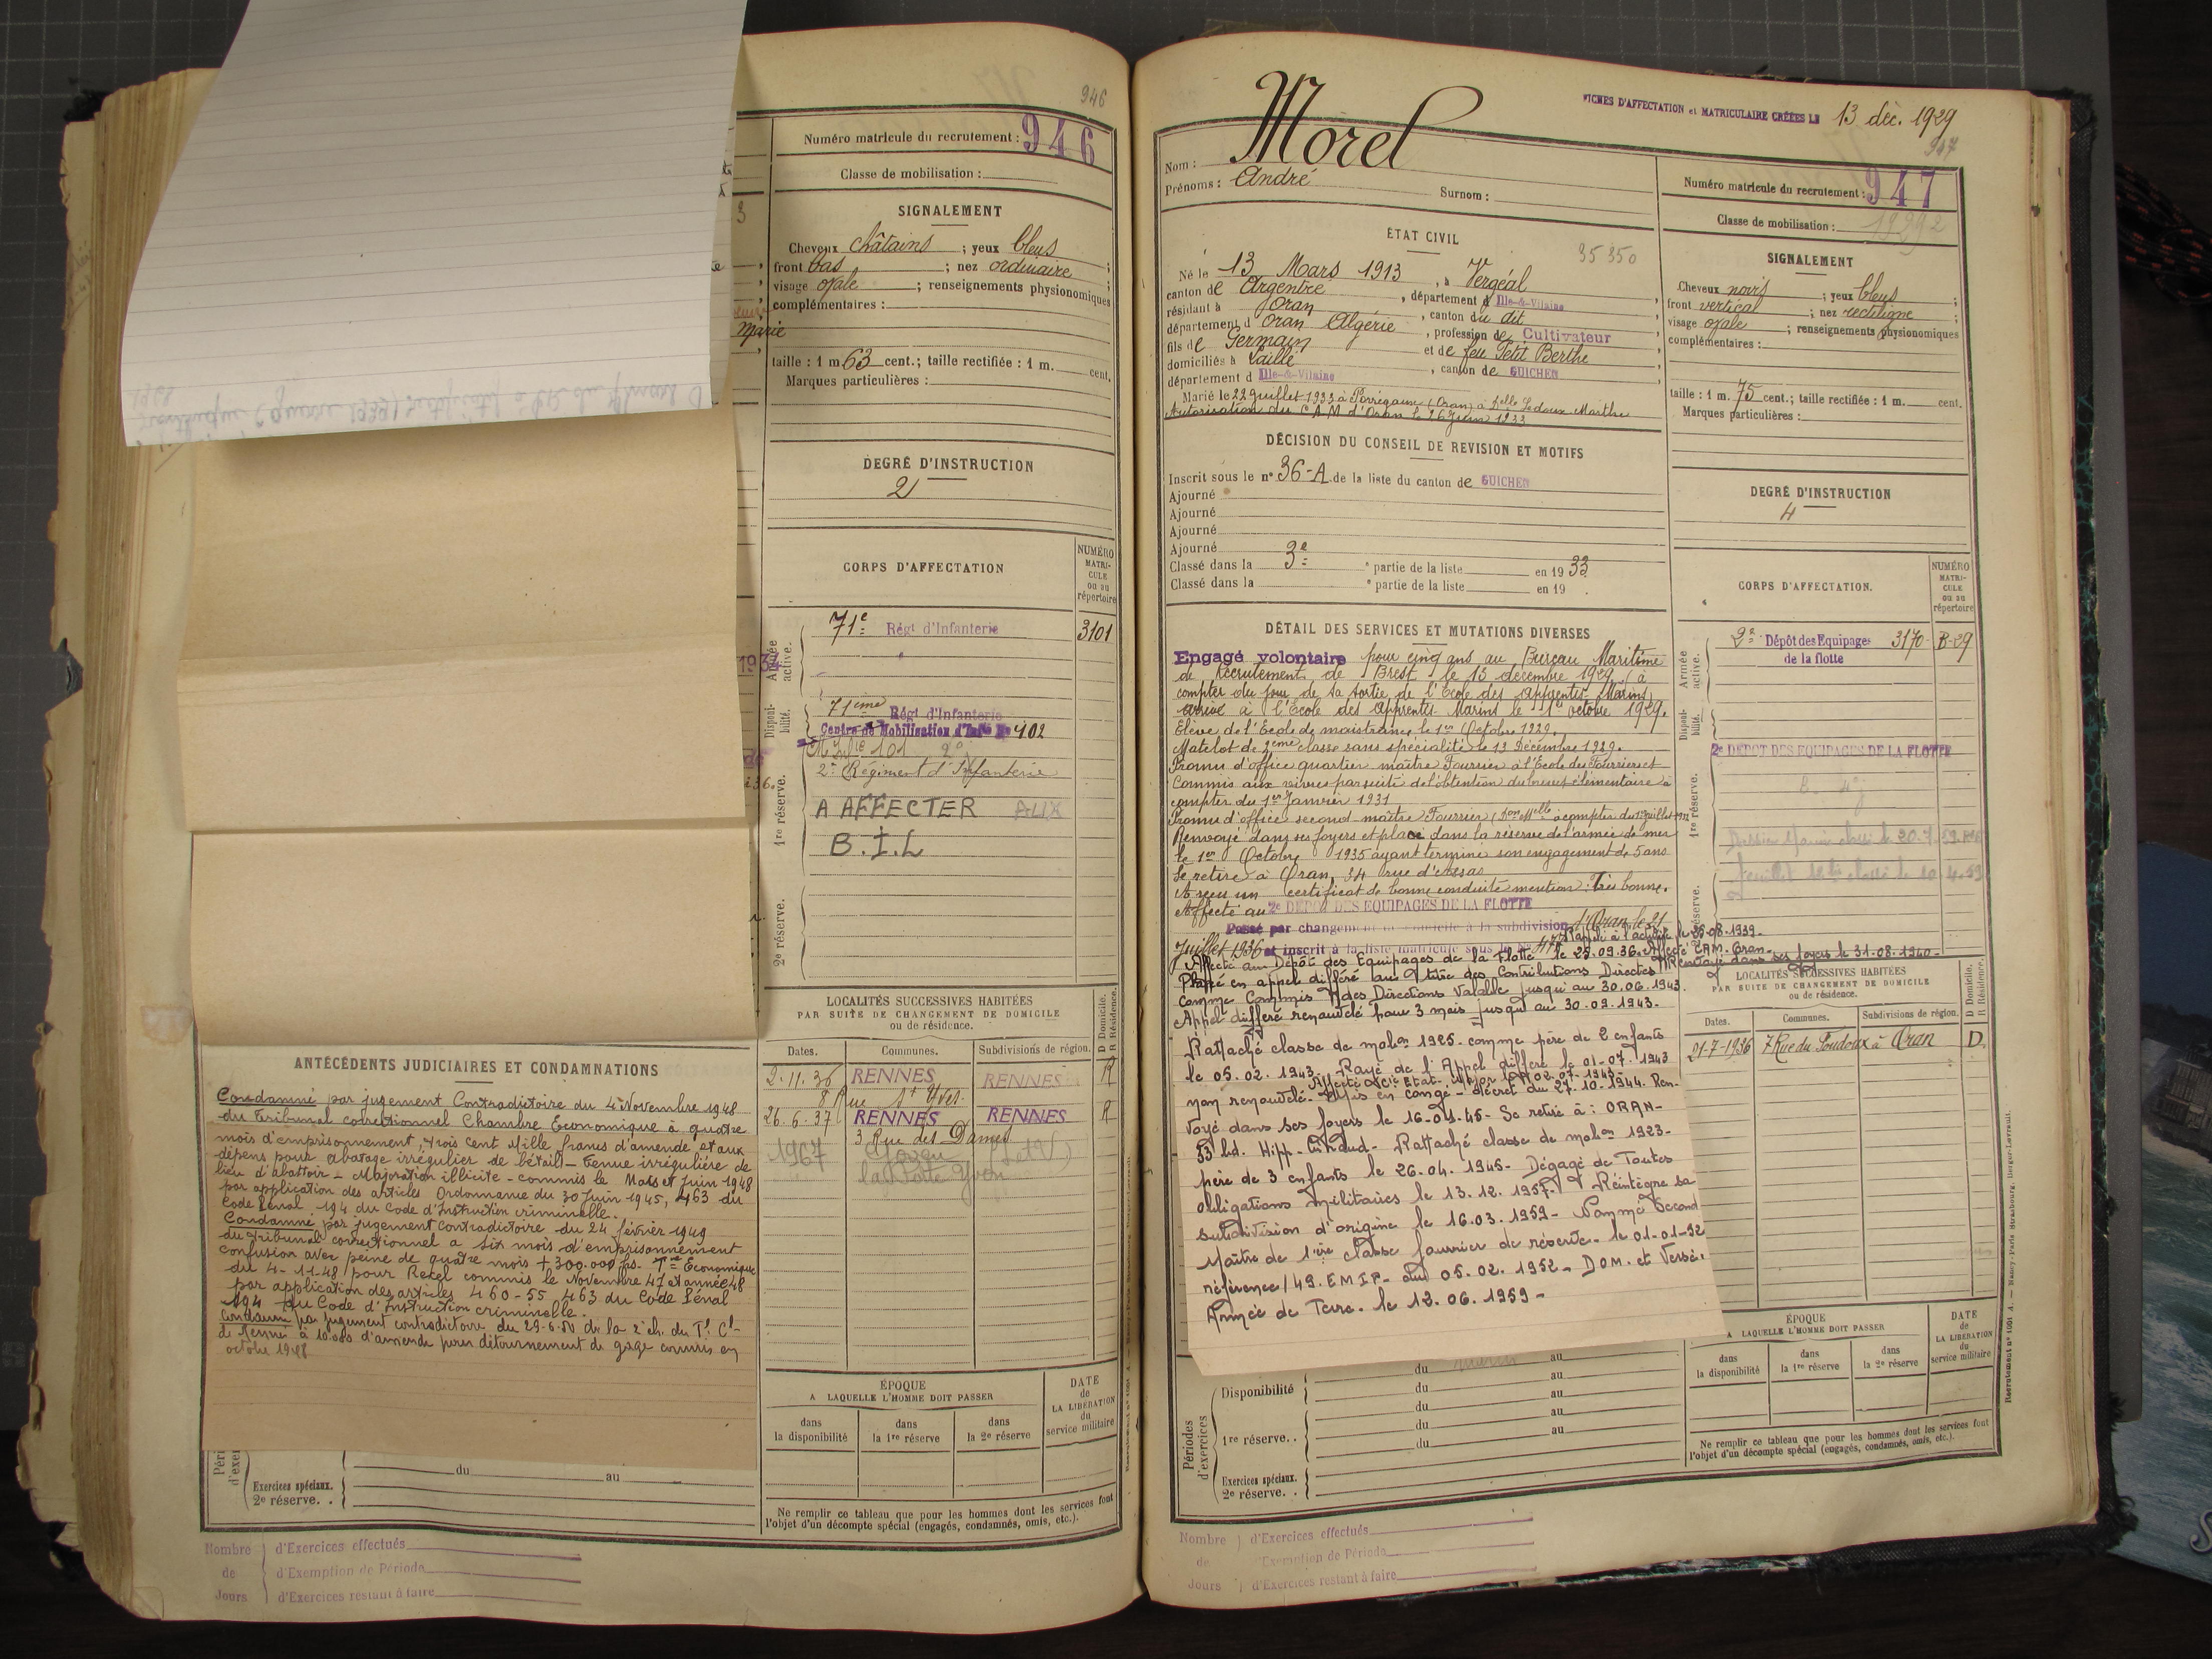 946
Numéro matricule du recrutement : 946
Classe de mobilisation :
SIGNALEMENT
Cheveux châtains ; yeux bleus ;
front bas ; nez ordinaire ;
visage ovale ; renseignements physionomiques
complémentaires :
Marie
taille : 1 m. 63 cent.; taille rectifiée : 1 m. cent.
Marques particulières :
DEGRÉ D'INSTRUCTION
2
CORPS D'AFFECTATION
NUMÉRO MATRI-CULE ou au répertoire
Armée active.
71e Régt d'Infanterie 3101
Disponibilité.
71ème Régt d'Infanterie
Centre de Mobilisation d'Infie No 102
1re réserve.
2e Régiment d'Infanterie
A AFFECTER ALIX
B.I.L
2e réserve.
LOCALITÉS SUCCESSIVES HABITÉES
PAR SUITE DE CHANGEMENT DE DOMICILE
ou de résidence.
D Domicile. R Résidence.
Dates. Communes. Subdivisions de région.
2.11.36 RENNES RENNES R
8 Rue St Yves
26.6.37 RENNES RENNES R
3 Rue des Dames
1967
ÉPOQUE
A LAQUELLE L'HOMME DOIT PASSER
dans la disponibilité
dans la 1re réserve
dans la 2e réserve
DATE de LA LIBÉRATION du service militaire
Ne remplir ce tableau que pour les hommes dont les services font
l'objet d'un décompte spécial (engagés, condamnés, omis, etc.).
ANTÉCÉDENTS JUDICIAIRES ET CONDAMNATIONS
Condamné par jugement Contradictoire du 4 Novembre 1948
du Tribunal correctionnel Chambre Economique à quatre
mois d'emprisonnement, trois cent Mille francs d'amende et aux
dépens pour abatage irrégulier de bétail - tenue irrégulière de
lieu d'abattoir - Majoration illicite - commis le Mars et Juin 1948
par application des articles Ordonnance du 30 Juin 1945, 463 du
Code Pénal 194 du Code d'Instruction criminelle.
Condamné par jugement contradictoire du 24 février 1949
du Tribunal correctionnel a six mois d'emprisonnement
confusion avec peine de quatre mois + 300.000 frs - Economique
du 4-11-48 pour Recel commis le Novembre 47 et année 48
par application des articles 460-55 463 du Code Pénal
194 du Code d'Instruction criminelle.
Condamné par jugement contradictoire du 29-6-50 de la 2e ch. du Tl Cl
de Rennes à 10.000 d'amende pour détournement de gage commis en
octobre 1948
du au
Exercices spéciaux.
2e réserve. .
Nombre de Jours
d'Exercices effectués
d'Exemption de Période
d'Exercices restant à faire
FICHES D'AFFECTATION et MATRICULAIRE CRÉÉES LE 13 déc. 1929
947
Nom : Morel
Prénoms : André Surnom :
Numéro matricule du recrutement : 947
Classe de mobilisation :
ÉTAT CIVIL
35 350
Né le 13 Mars 1913, à Vergéal
canton de Argentré, département d Ille-&-Vilaine,
résidant à Oran, canton du dit
département d Oran Algérie, profession de Cultivateur
fils de Germain et de feu Petit Berthe
domiciliés à Laillé, canton de GUICHEN
département d Ille-&-Vilaine
Marié le 22 Juillet 1933 à Perrégaux (Oran) à Delle Ledoux Marthe
Autorisation du C.A.M d'Oran le 26 Juin 1933
SIGNALEMENT
Cheveux noirs ; yeux bleus ;
front vertical ; nez rectiligne ;
visage ovale ; renseignements physionomiques
complémentaires :
taille : 1 m. 75 cent.; taille rectifiée : 1 m. cent.
Marques particulières :
DÉCISION DU CONSEIL DE REVISION ET MOTIFS
Inscrit sous le n° 36-A de la liste du canton de GUICHEN
Ajourné
Ajourné
Ajourné
Ajourné
Classé dans la 3e partie de la liste en 1933
Classé dans la e partie de la liste en 19 .
DEGRÉ D'INSTRUCTION
4
CORPS D'AFFECTATION.
NUMÉRO MATRI-CULE ou au répertoire
Armée active.
2e Dépôt des Equipages de la flotte 3170 B-29
Disponibilité.
2e DÉPÔT DES EQUIPAGES DE LA FLOTTE
1re réserve.
DÉTAIL DES SERVICES ET MUTATIONS DIVERSES
Engagé volontaire pour cinq ans au Bureau Maritime
de Recrutement de Brest le 13 décembre 1929 (à
compter du jour de sa sortie de l'École des Apprentis-Marins)
arrivé à l'École des Apprentis-Marins le 1er octobre 1929.
Elève de l'École de maistrance le 1er Octobre 1929.
Matelot de 2ème classe sans spécialité le 13 Décembre 1929.
Promu d'office quartier maître Fourrier à l'École des Fourriers et
Commis aux vivres par suite de l'obtention du brevet élémentaire à
compter du 1er Janvier 1931
Promu d'office second maître Fourrier à compter du 1er juillet
Renvoyé dans ses foyers et placé dans la réserve de l'armée de mer
le 1er Octobre 1935 ayant terminé son engagement de 5 ans
Se retire à Oran, 34 rue d'Assas
A reçu un certificat de bonne conduite mention : Très bonne.
Affecté au 2e DÉPÔT DES EQUIPAGES DE LA FLOTTE
Passé par changement de domicile à la subdivision d'Oran le 21
Juillet 1936 et inscrit à la liste matricule sous le no
Rappelé à l'activité le 26.08.1939.
Affecté au Dépôt des Equipages de la Flotte le 25.09.36. Affecté CAM. Oran-
Renvoyé dans ses foyers le 31.08.1940-
Placé en appel différé au titre des Contributions Directes
comme Commis des Directions valable jusqu'au 30.06.1943.
Appel différé renouvelé pour 3 mois jusqu'au 30.09.1943.
Rattaché classe de mobon 1925. comme père de 2 enfants
le 05.02.1943. Rayé de l'Appel différé le 01.07.1943
non renouvelé. Mis en congé - décret du 27.10.1944. Ren-
voyé dans ses foyers le 16-01-45- Se retire à : ORAN-
53 bd. Hipp. Giraud- Rattaché classe de mobon 1923-
père de 3 enfants le 26.04.1945- Dégagé de Toutes
obligations militaires le 13.12.1957. Réintègre sa
subdivision d'origine le 16.03.1959- Nommé Second
Maître de 1ère classe fourrier de réserve le 01-01-52
référence /49.EMIP- du 05.02.1952- DOM. et Versé.
Armée de Terre. le 12.06.1959-
LOCALITÉS SUCCESSIVES HABITÉES
PAR SUITE DE CHANGEMENT DE DOMICILE
ou de résidence.
D Domicile. R Résidence.
Dates. Communes. Subdivisions de région.
21-7-1936 7 Rue du à Oran D.
ÉPOQUE
A LAQUELLE L'HOMME DOIT PASSER
dans la disponibilité
dans la 1re réserve
dans la 2e réserve
DATE de LA LIBÉRATION du service militaire
Ne remplir ce tableau que pour les hommes dont les services font
l'objet d'un décompte spécial (engagés, condamnés, omis, etc.).
Périodes d'exercices
du au
Disponibilité du au
du au
du au
1re réserve. . du au
Exercices spéciaux.
2e réserve. .
Nombre de Jours
d'Exercices effectués
d'Exemption de Période
d'Exercices restant à faire
Recrutement n° 1001 A. — Nancy-Paris-Strasbourg, Berger-Levrault.